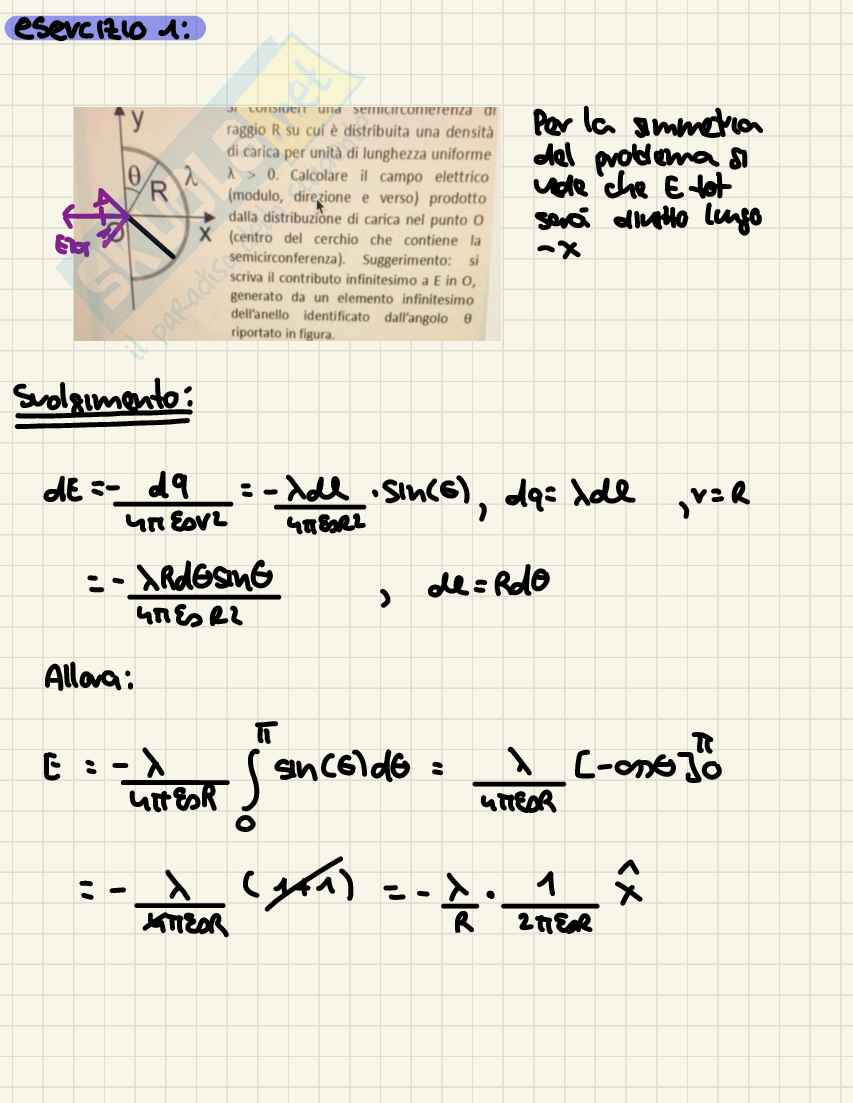 esercizio 1:
Si consideri una semicirconferenza di
raggio R su cui è distribuita una densità
di carica per unità di lunghezza uniforme
λ > 0. Calcolare il campo elettrico
(modulo, direzione e verso) prodotto
dalla distribuzione di carica nel punto O
(centro del cerchio che contiene la
semicirconferenza). Suggerimento: si
scriva il contributo infinitesimo a E in O,
generato da un elemento infinitesimo
dell'anello identificato dall'angolo θ
riportato in figura.
y
θ R λ
x
O
Etot
Per la simmetria
del problema si
vede che E tot
sarà diretto lungo
-x
Svolgimento:
dE = - dq / 4πε0r2 = - λdl / 4πε0R2 · sin(θ), dq = λdl , r = R
= - λRdθsinθ / 4πε0R2 , dl = Rdθ
Allora:
E = -λ / 4πε0R ∫0π sin(θ)dθ = λ / 4πε0R [-cosθ]π0
= - λ / 4πε0R (1+1) = - λ / R · 1 / 2πε0R x̂